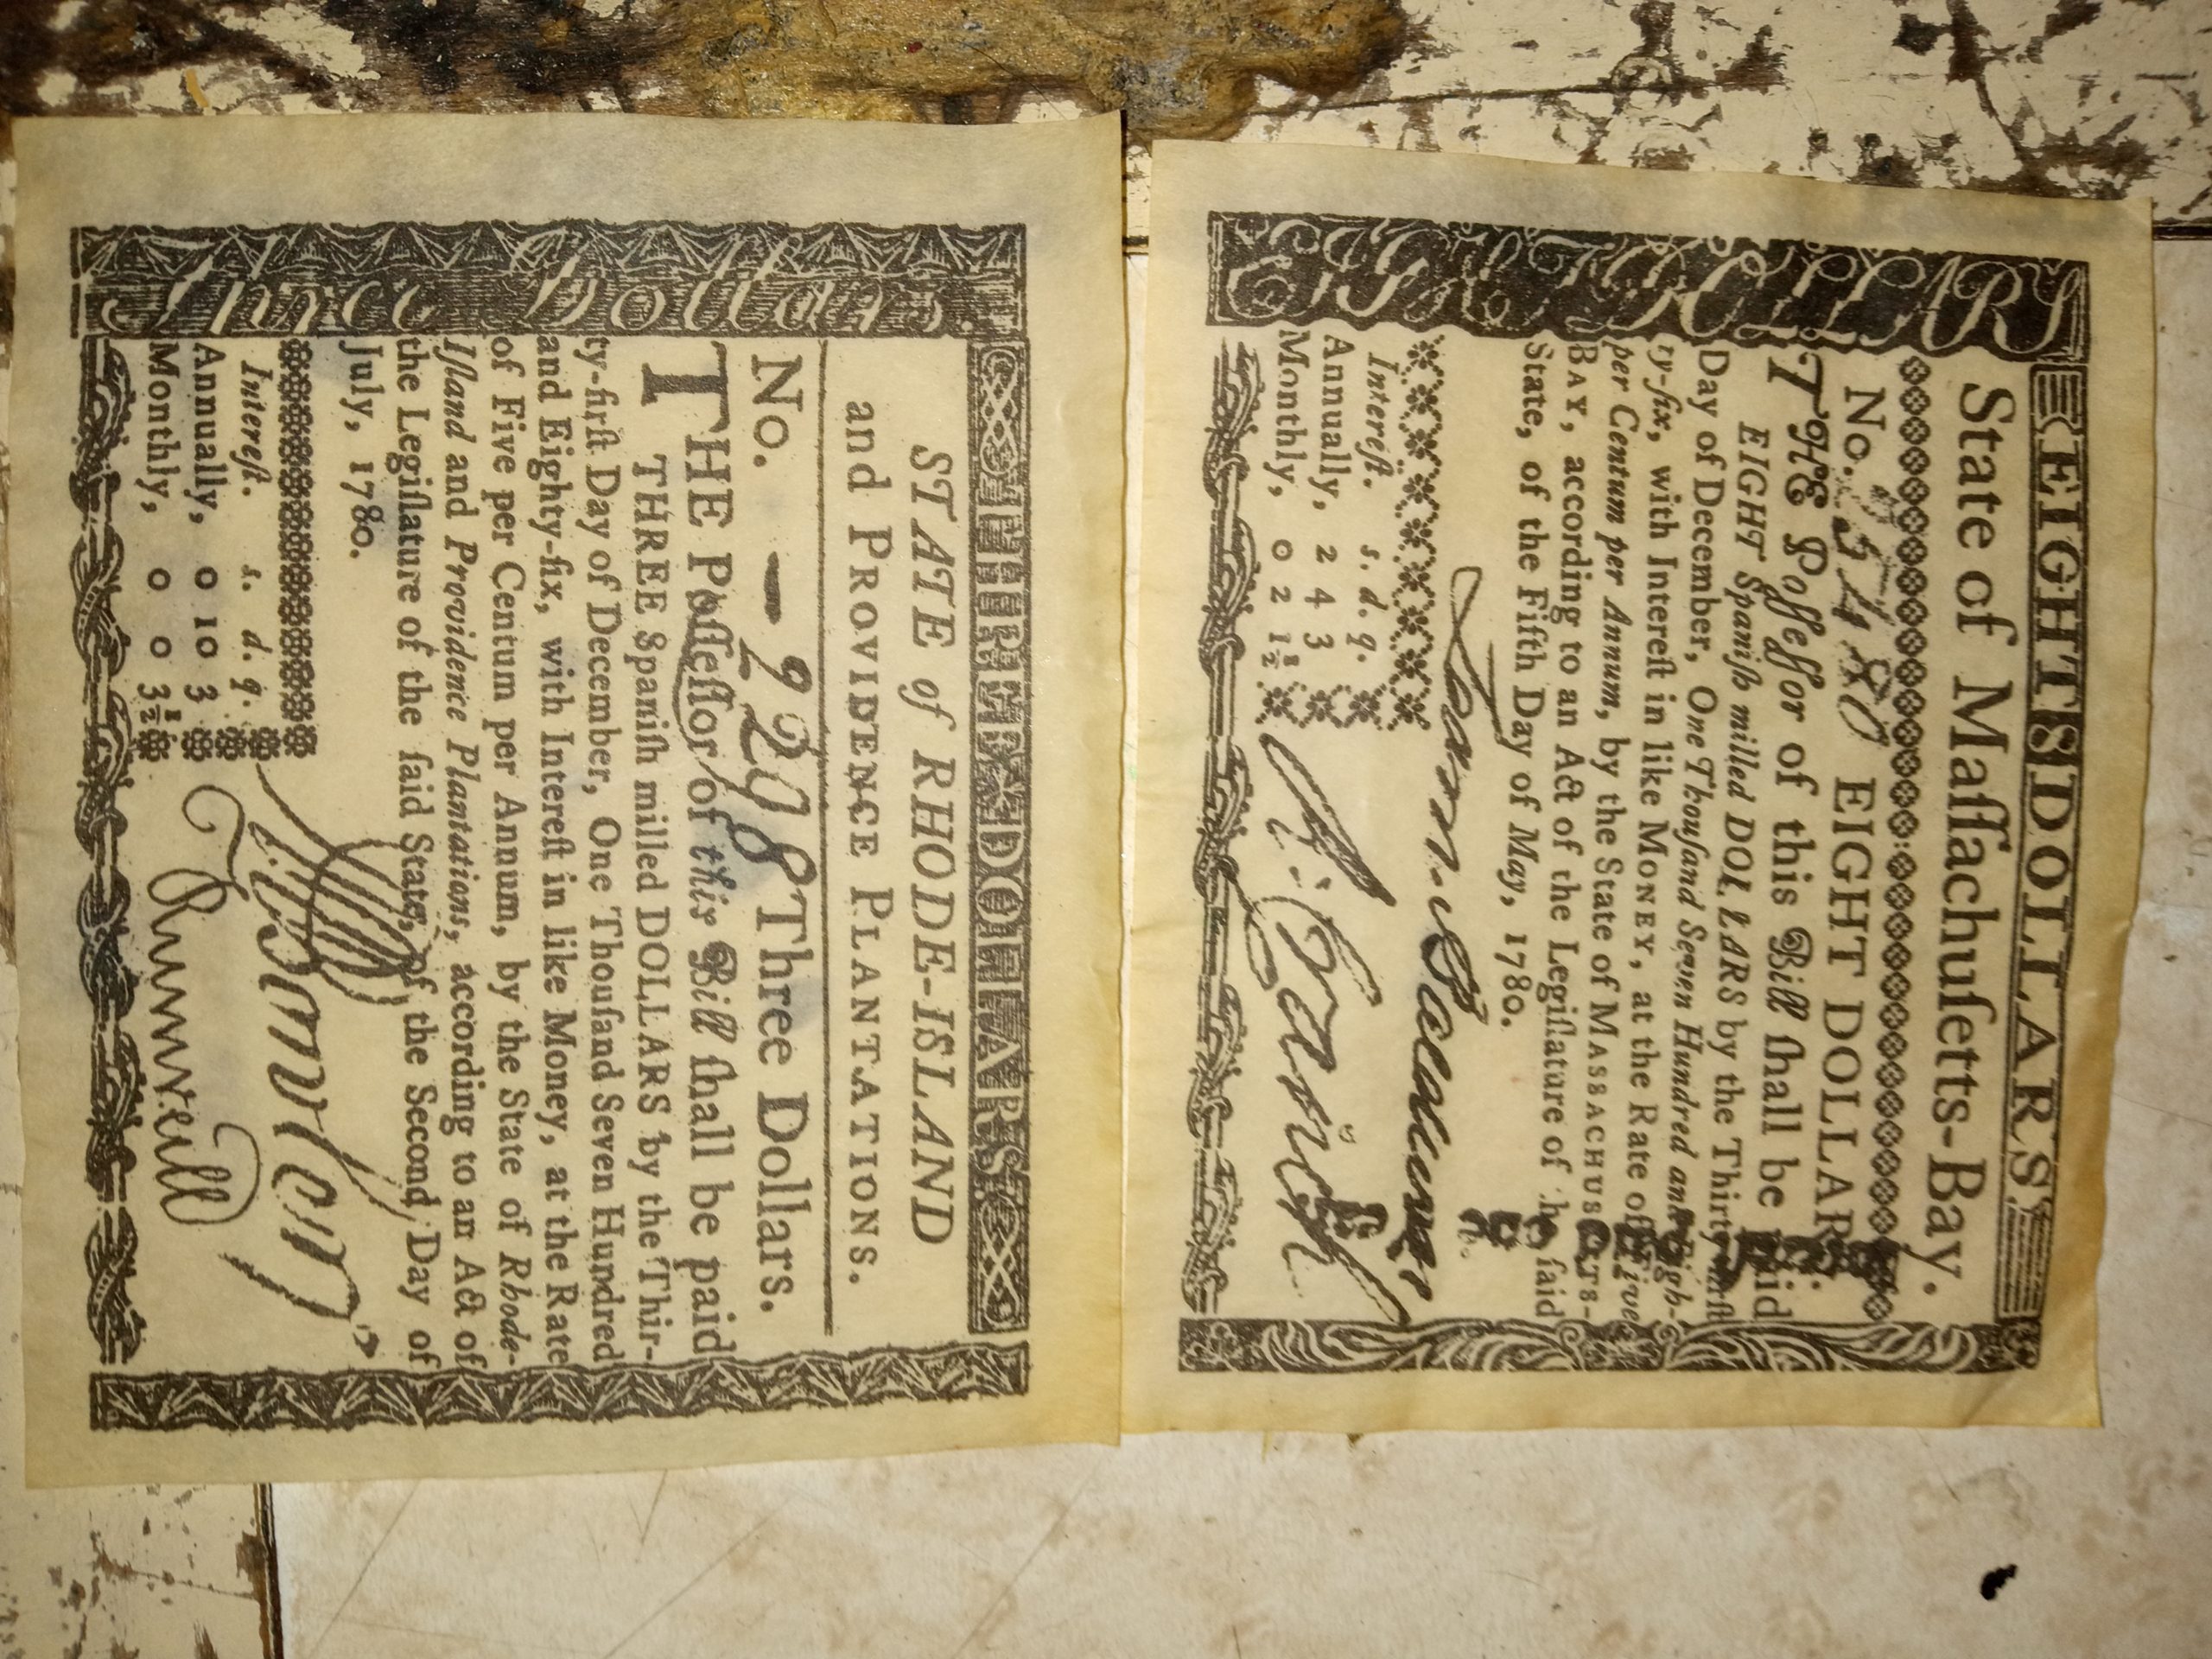 Three Dollars.
THREE DOLLARS
STATE of RHODE-ISLAND
and PROVIDENCE PLANTATIONS.
No. — 2298 Three Dollars.
THE Poſſeſſor of this Bill ſhall be paid
THREE Spaniſh milled DOLLARS by the Thir-
ty-firſt Day of December, One Thouſand Seven Hundred
and Eighty-ſix, with Intereſt in like Money, at the Rate
of Five per Centum per Annum, by the State of Rhode-
Iſland and Providence Plantations, according to an Act of
the Legiſlature of the ſaid State, of the Second Day of
July, 1780.
Intereſt. s. d. q.
Annually, 0 10 3
Monthly, 0 0 3½
EIGHT 8 DOLLARS
State of Maſſachuſetts-Bay.
No. EIGHT DOLLARS.
THE Poſſeſſor of this Bill ſhall be paid
EIGHT Spaniſh milled DOLLARS by the Thirty-firſt
Day of December, One Thouſand Seven Hundred and Eigh-
ty-ſix, with Intereſt in like MONEY, at the Rate of Five
per Centum per Annum, by the State of MASSACHUSETTS-
BAY, according to an Act of the Legiſlature of the ſaid
State, of the Fifth Day of May, 1780.
Intereſt. s. d. q.
Annually, 2 4 3
Monthly, 0 2 1½